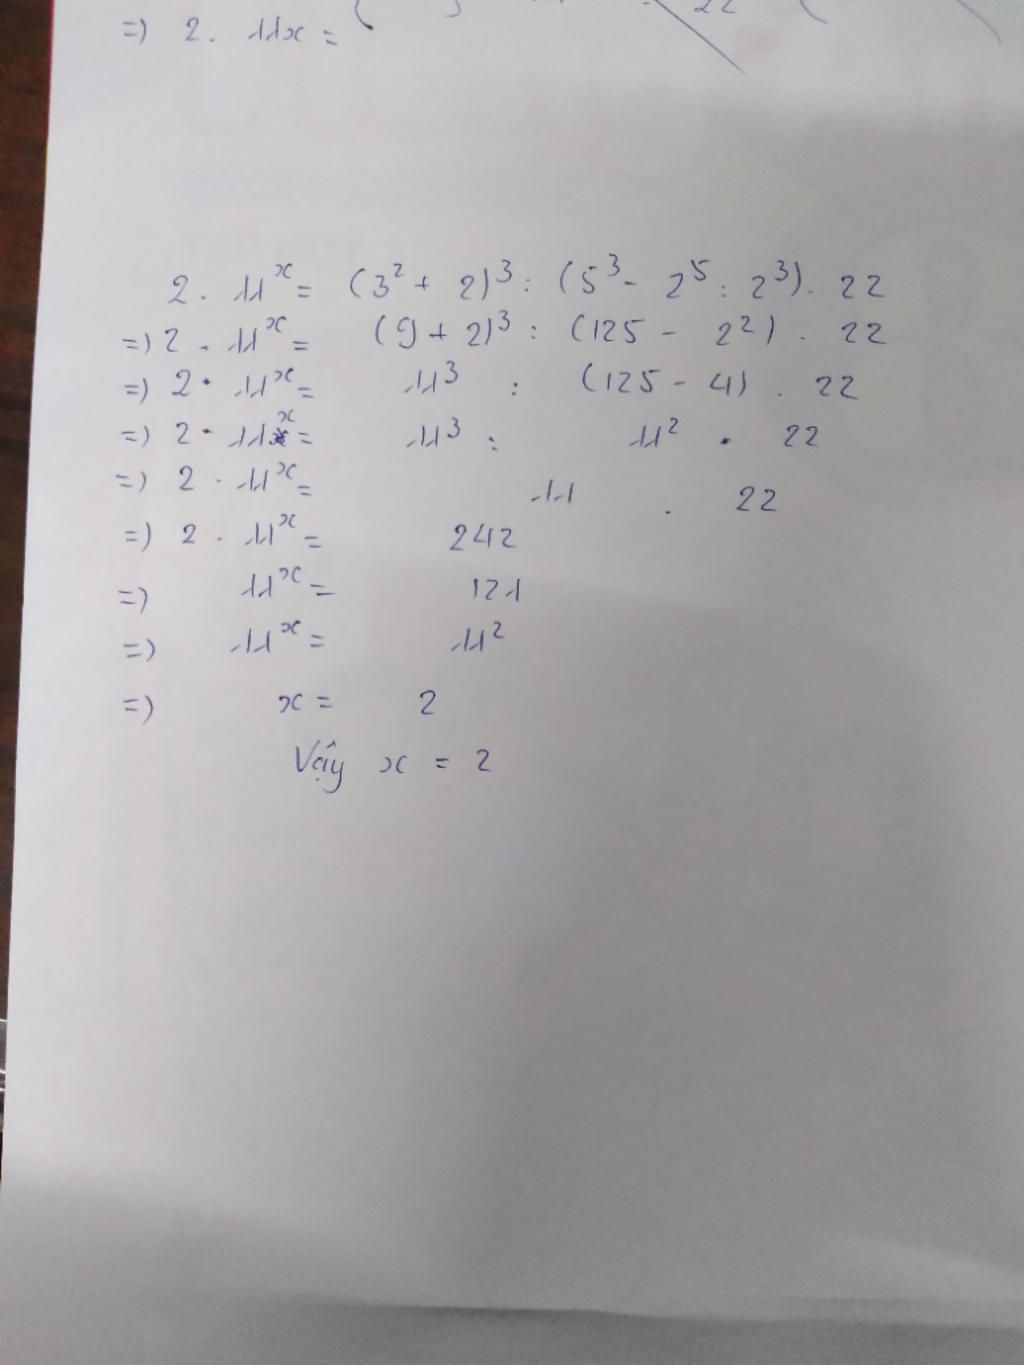 =) 2. 11x = (
22
2. 11^x = (3^2 + 2)^3 : (5^3 - 2^5 : 2^3). 22
=) 2 . 11^x = (9 + 2)^3 : (125 - 2^2) . 22
=) 2 . 11^x = 11^3 : (125 - 4) . 22
=) 2 . 11^x = 11^3 : 11^2 . 22
=) 2 . 11^x = 11 . 22
=) 2 . 11^x = 242
=) 11^x = 121
=) 11^x = 11^2
=) x = 2
Vậy x = 2